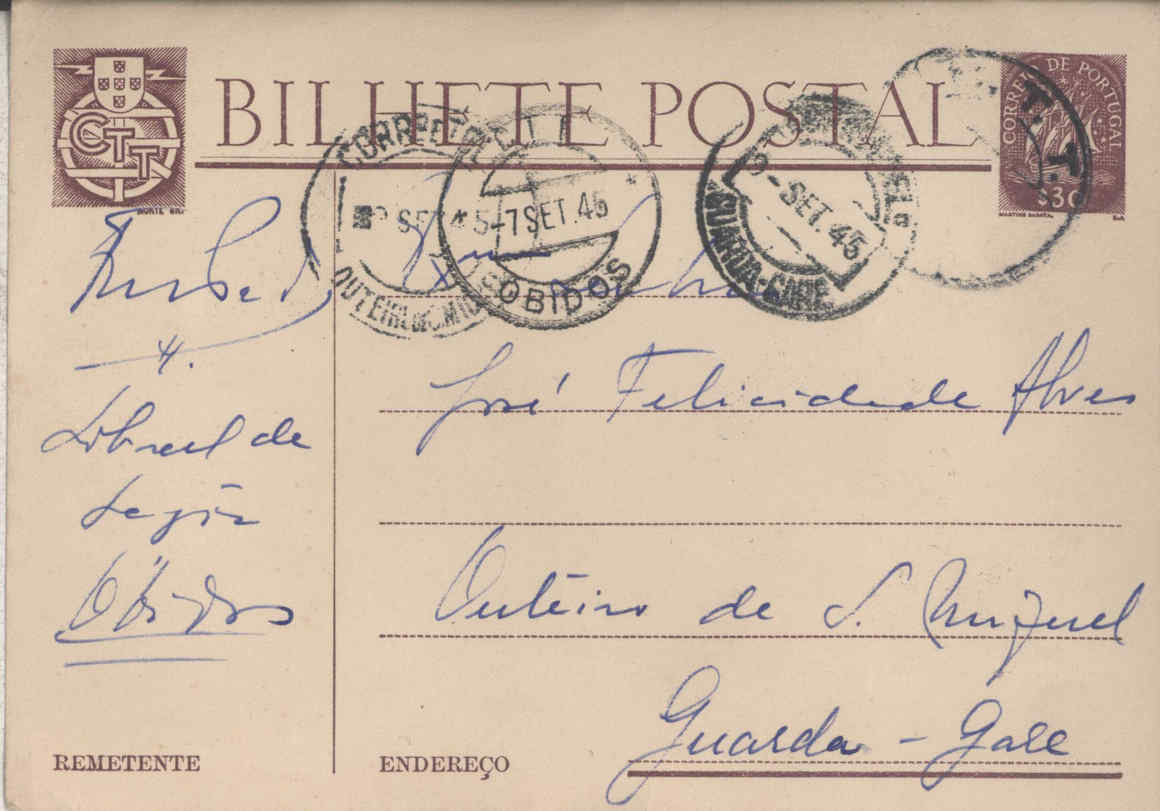 CTT
BILHETE POSTAL
CORREIO DE PORTUGAL
$30
MARTINS BARATA
T. T.
CORREIO
SET 45
OUTEIRO S. MIG
C T T
7 SET. 45
OBIDOS
9 - SET. 45
GUARDA-GARE
José Felicidade Alves
Sobral de
Lagoa
Óbidos
Outeiro de S. Miguel
Guarda - Gare
REMETENTE
ENDEREÇO